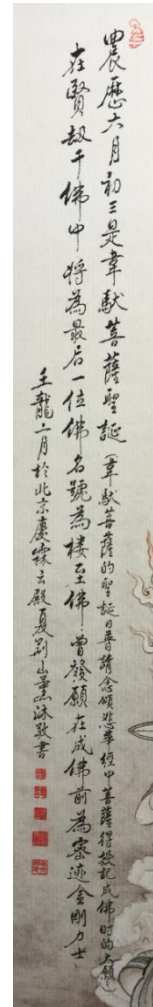 農歷六月初三是韋馱菩薩聖誕（韋馱菩薩的聖誕日普請念頌悲華經中菩薩得授記成佛時的大願）
在賢劫千佛中將為最后一位佛名號為楼至佛曾發願在成佛前為密迹金剛力士
壬龍二月於北京慶霖古殿夏荆山薰沐敬書